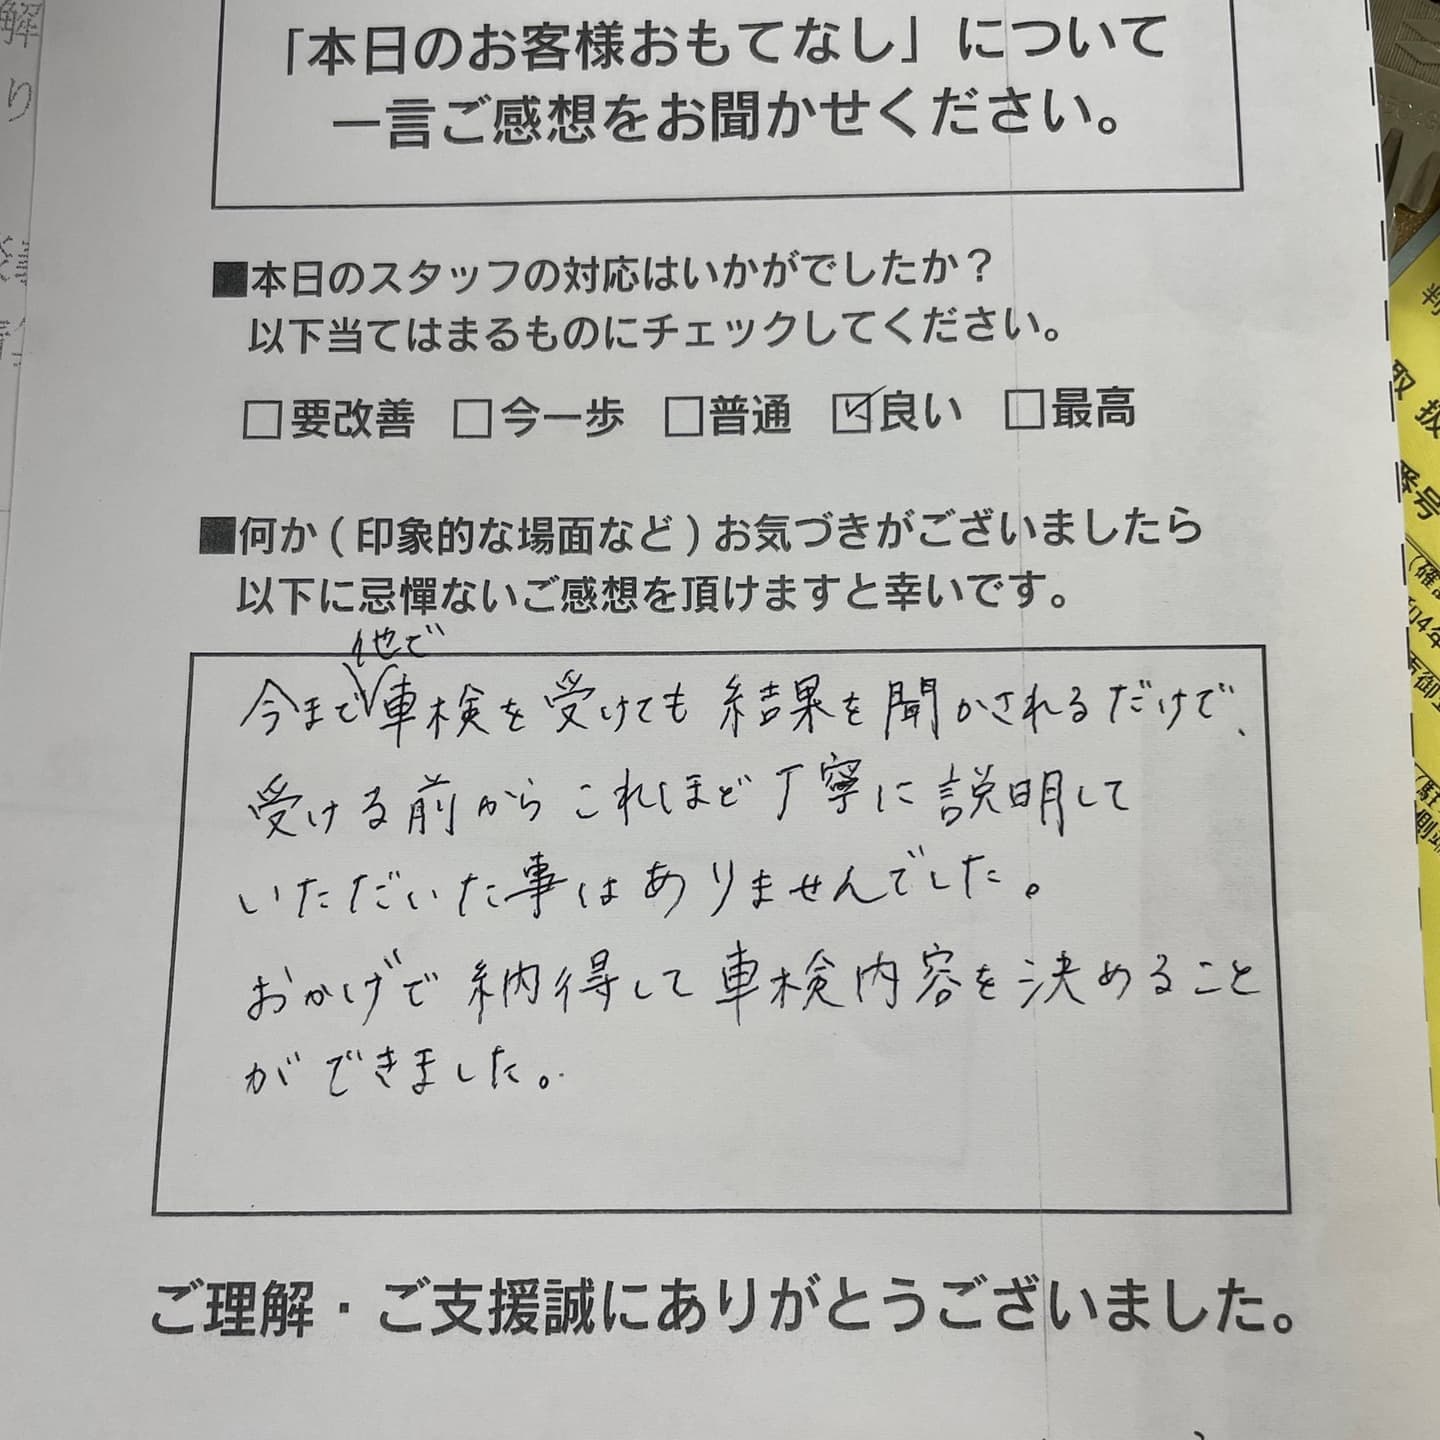 「本日のお客様おもてなし」について
一言ご感想をお聞かせください。
■本日のスタッフの対応はいかがでしたか？
以下当てはまるものにチェックしてください。
□要改善 □今一歩 □普通 ☑良い □最高
■何か(印象的な場面など)お気づきがございましたら
以下に忌憚ないご感想を頂けますと幸いです。
他で
今まで車検を受けても結果を聞かされるだけで、
受ける前からこれほど丁寧に説明して
いただいた事はありませんでした。
おかげで納得して車検内容を決めること
ができました。
ご理解・ご支援誠にありがとうございました。
解
り
取扱
番号